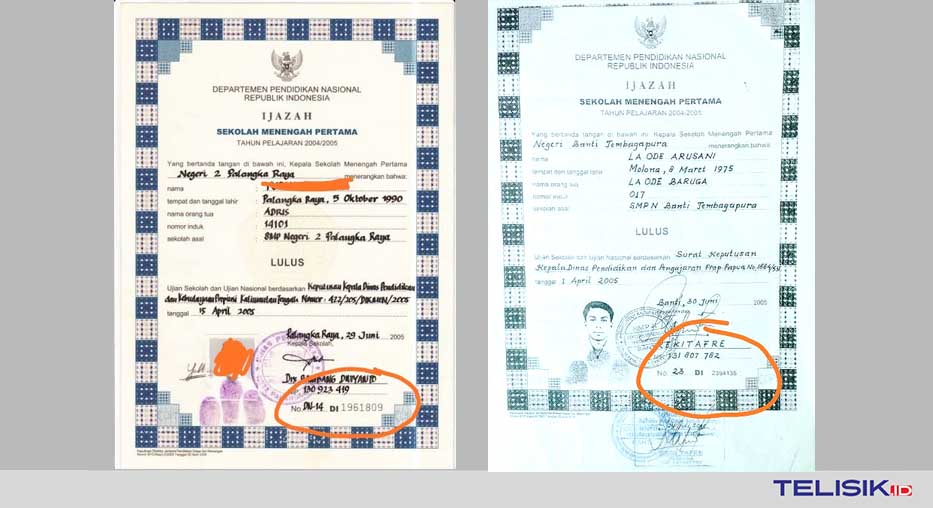 DEPARTEMEN PENDIDIKAN NASIONAL
REPUBLIK INDONESIA
IJAZAH
SEKOLAH MENENGAH PERTAMA
TAHUN PELAJARAN 2004/2005
Yang bertanda tangan di bawah ini, Kepala Sekolah Menengah Pertama
Negeri 2 Palangka Raya menerangkan bahwa:
nama
tempat dan tanggal lahir Palangka Raya, 5 Oktober 1990
nama orang tua ADRIS
nomor induk 14101
sekolah asal SMP Negeri 2 Palangka Raya
LULUS
Ujian Sekolah dan Ujian Nasional berdasarkan Keputusan Kepala Dinas Pendidikan
dan Kebudayaan Propinsi Kalimantan Tengah Nomor : 422/205/DIKMEN/2005
tanggal 15 April 2005
Palangka Raya, 29 Juni 2005
Kepala Sekolah,
Drs.
130 923 419
No. DN-14 DI 1961809
DEPARTEMEN PENDIDIKAN NASIONAL
REPUBLIK INDONESIA
IJAZAH
SEKOLAH MENENGAH PERTAMA
TAHUN PELAJARAN 2004-2005
Yang bertanda tangan di bawah ini, Kepala Sekolah Menengah Pertama
Negeri Banti Tembagapura menerangkan bahwa:
nama LA ODE ARUSANI
tempat dan tanggal lahir Molona, 8 Maret 1975
nama orang tua LA ODE BARUGA
nomor induk 017
sekolah asal SMPN Banti Tembagapura
LULUS
Ujian Sekolah dan Ujian Nasional berdasarkan Surat Keputusan
Kepala Dinas Pendidikan dan Pengajaran Prop Papua No.
tanggal 1 April 2005
Banti, 30 Juni 2005
KITAFRE
131 807 782
No. 23 DI 2394135
TELISIK.ID